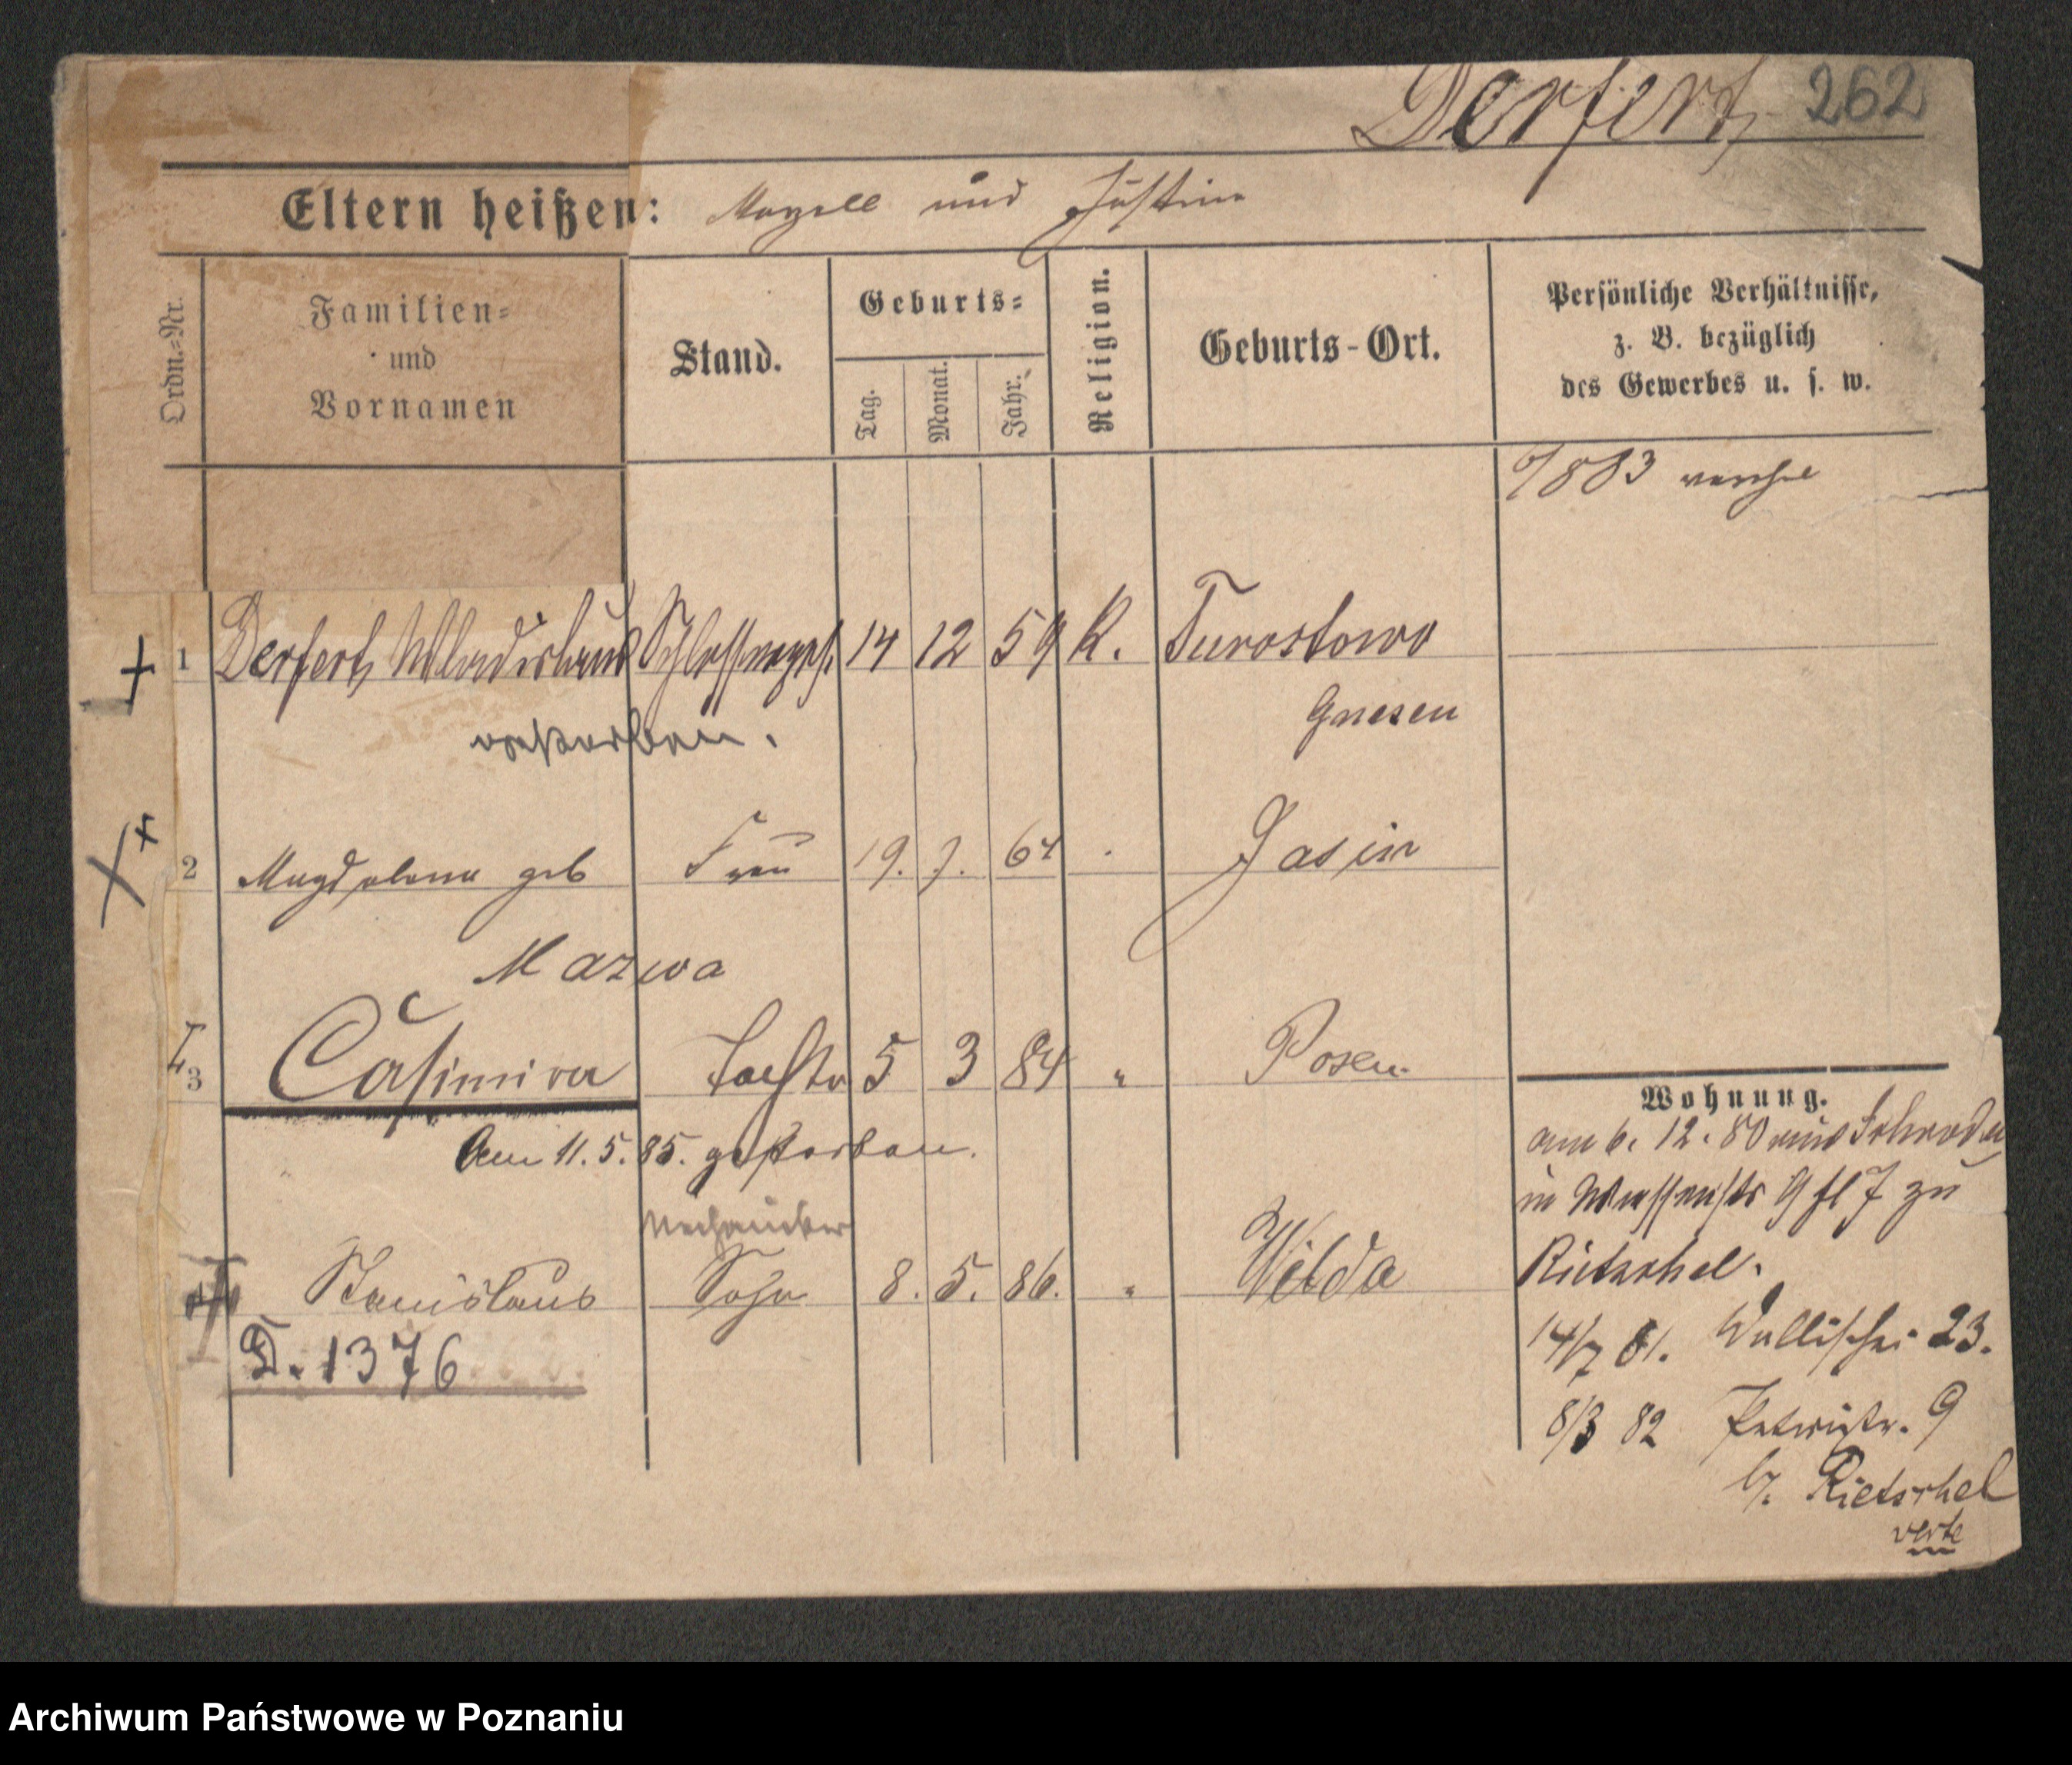 Derfert 262
Eltern heißen: Marzell und Justine
Ordn.=Nr.
Familien=
und
Vornamen
Stand.
Geburts=
Tag.
Monat.
Jahr.
Religion.
Geburts-Ort.
Persönliche Verhältnisse,
z. B. bezüglich
des Gewerbes u. s. w.
1 Derfert, Wladislaus Schlosserges. 14 12 59 K. Turostowo
Gnesen
verstorben.
2 Magdalena geb Frau 19. 7. 64 Jasin
Mazwa
3 Casimira Tochtr 5 3 84 " Posen
Am 11. 5. 85. gestorben.
Mechaniker
Stanislaus Sohn 8. 5. 86. " Wilda
D. 1376
Wohnung.
am 6. 12. 80 aus Schroda
in Wasserstr 9 zu
Rietschel.
14/7 81. Wallischei 23.
8/3 82 Petristr. 9
b/. Rietschel
verte
Archiwum Państwowe w Poznaniu